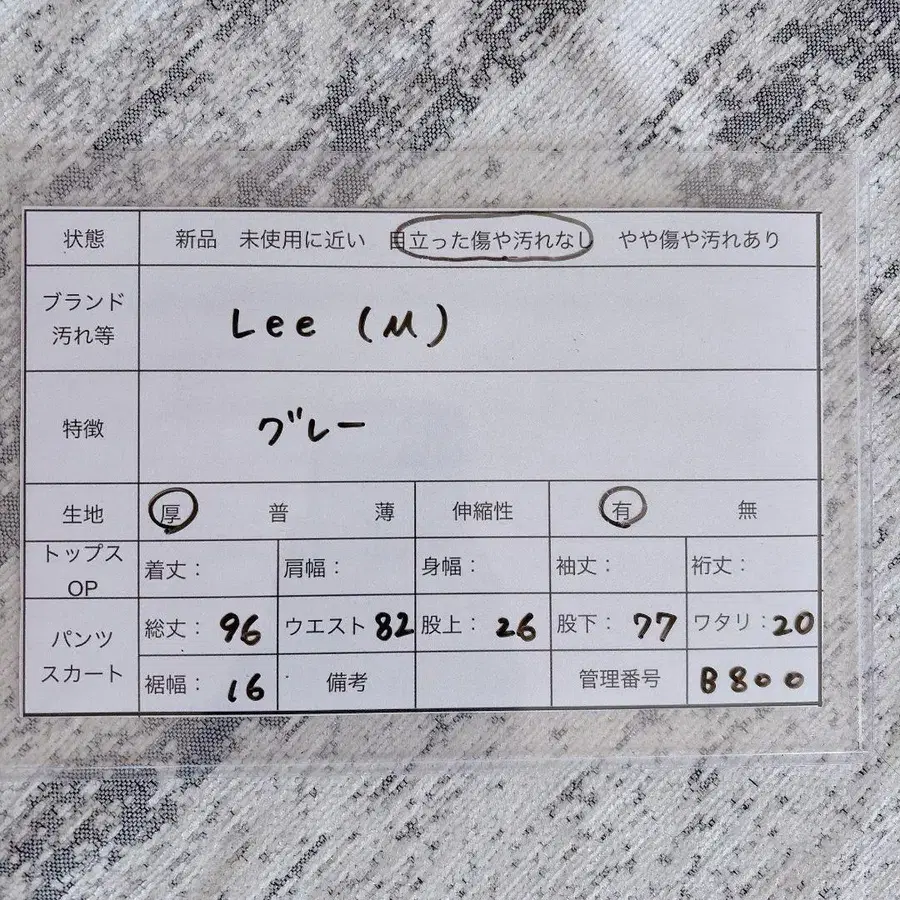 状態 新品 未使用に近い 目立った傷や汚れなし やや傷や汚れあり
ブランド
汚れ等
Lee (M)
特徴 グレー
生地 厚 普 薄 伸縮性 有 無
トップス
OP
着丈: 肩幅: 身幅: 袖丈: 裄丈:
パンツ
スカート
総丈: 96 ウエスト 82 股上: 26 股下: 77 ワタリ: 20
裾幅: 16 備考 管理番号 B800